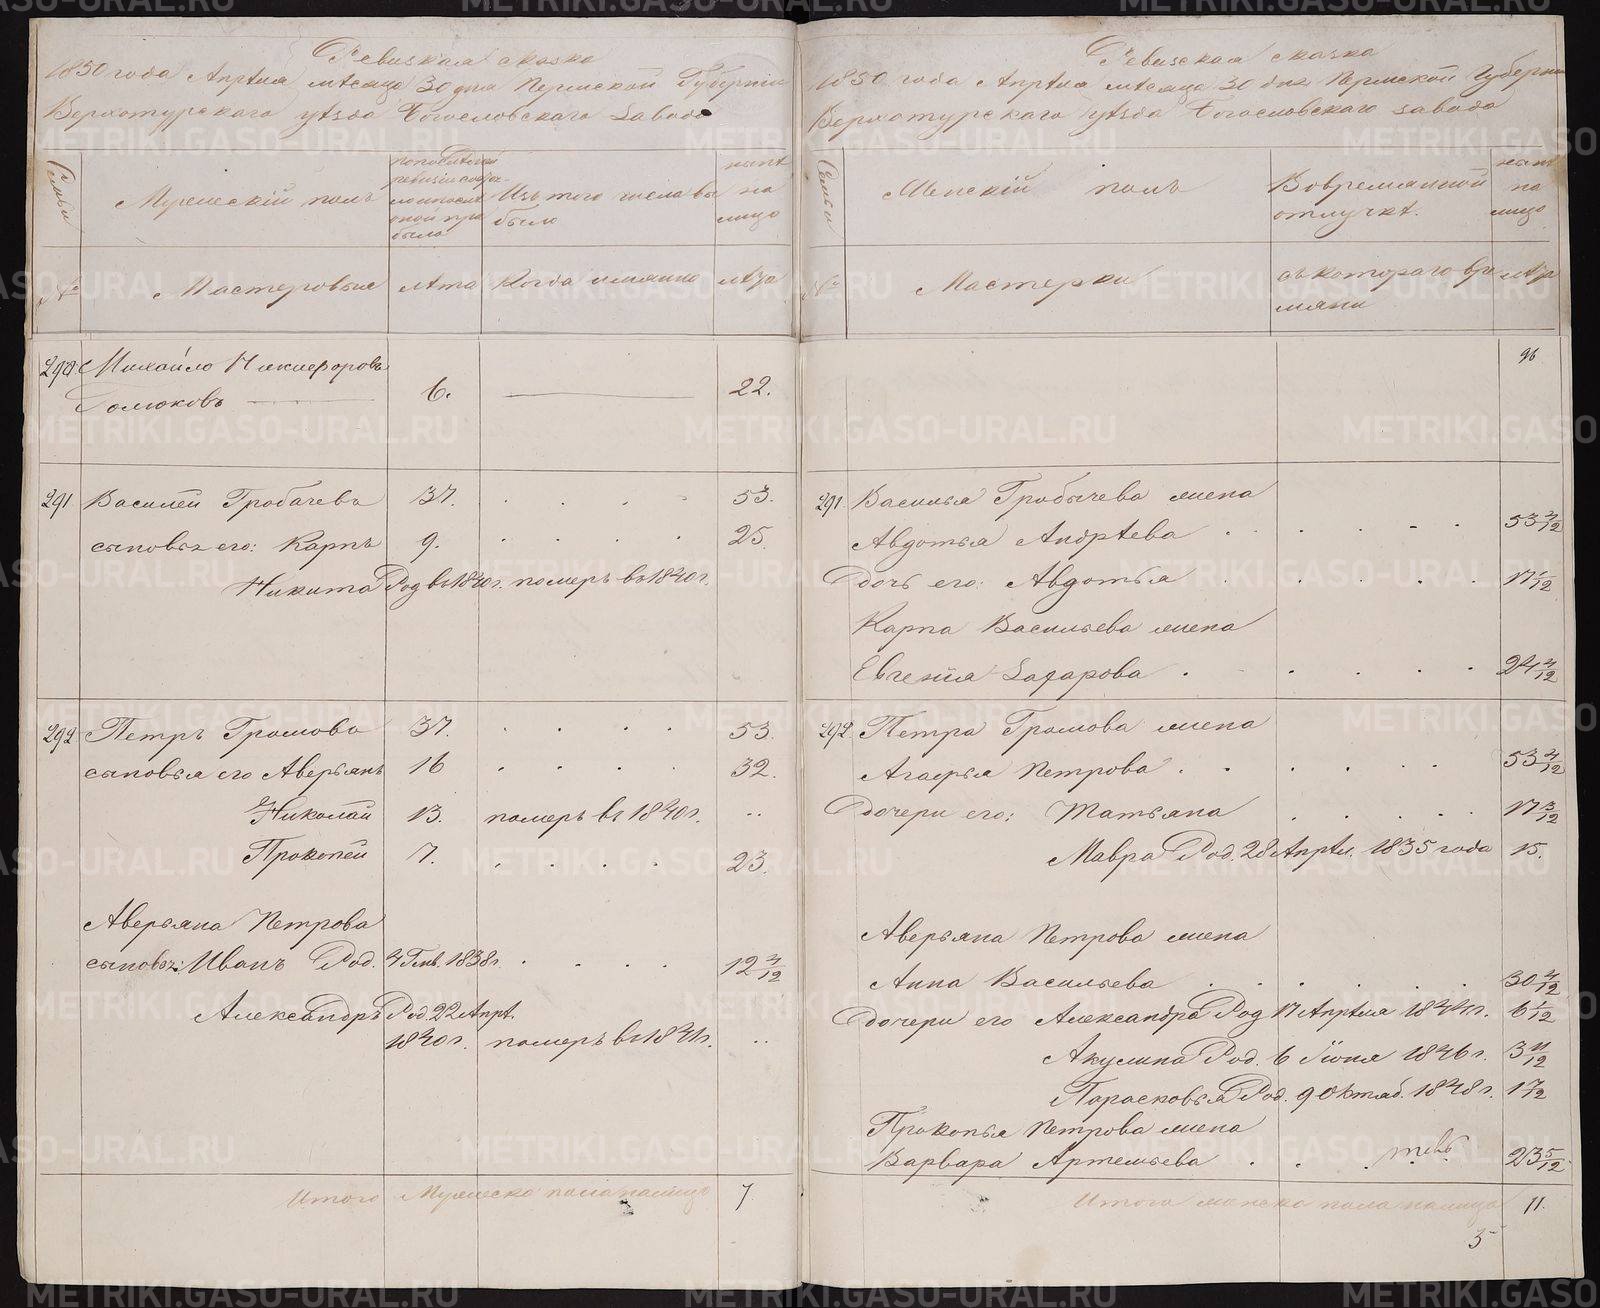 Ревизская сказка
1850 года Апрѣля мѣсяца 30 дня Пермской Губерніи
Верхотурскаго уѣзда Богословскаго завода
Семьи
Мужескій полъ
по последней
ревизіи
было
Изъ того числа вы
было
нынѣ
на
лицо
№
Мастеровые
лѣта
Когда имянно
лѣта
290
Михайло Никифоровъ
Голюковъ
6.
22.
291
Василей Гробачевъ
37.
53.
сыновья его: Карпъ
9.
25.
Никита Род въ 1840 г. померъ въ 1840 г.
292
Петръ Громовъ
37.
53.
сыновья его Аверьянъ
16
32.
Николай
13.
померъ въ 1840 г.
Прокопей
7.
23.
Аверьяна Петрова
сыновья: Иванъ Род. 4 Генв. 1838 г.
12 4/12
Александръ Род. 22 Апрѣ.
1840 г. померъ въ 1841 г.
Итого Мужеска пола налицо
7
Ревизская сказка
1850 года Апрѣля мѣсяца 30 дня Пермской Губерніи
Верхотурскаго уѣзда Богословскаго завода
Семьи
Женскій полъ
Во временной
отлучкѣ.
нынѣ
на
лицо
№
Мастерки
съ котораго вре
мяни
лѣта
96
291
Василья Гробычева жена
Авдотья Андрѣева
53 4/12
Дочь его: Авдотья
17 1/12
Карпа Васильева жена
Евгенія Захарова
24 4/12
292
Петра Громова жена
Агафья Петрова
53 4/12
Дочери его: Татьяна
17 3/12
Мавра Род. 28 Апрѣл. 1835 года
15.
Аверьяна Петрова жена
Анна Васильева
30 4/12
Дочери его Александра Род 17 Апрѣля 1844 г.
6 1/12
Акулина Род. 6 Іюня 1846 г.
3 11/12
Парасковья Род. 9 Октяб. 1848 г.
1 7/12
Прокопья Петрова жена
Варвара Артемьева
23 5/12
Итого женска пола налицо
11.
METRIKI.GASO-URAL.RU